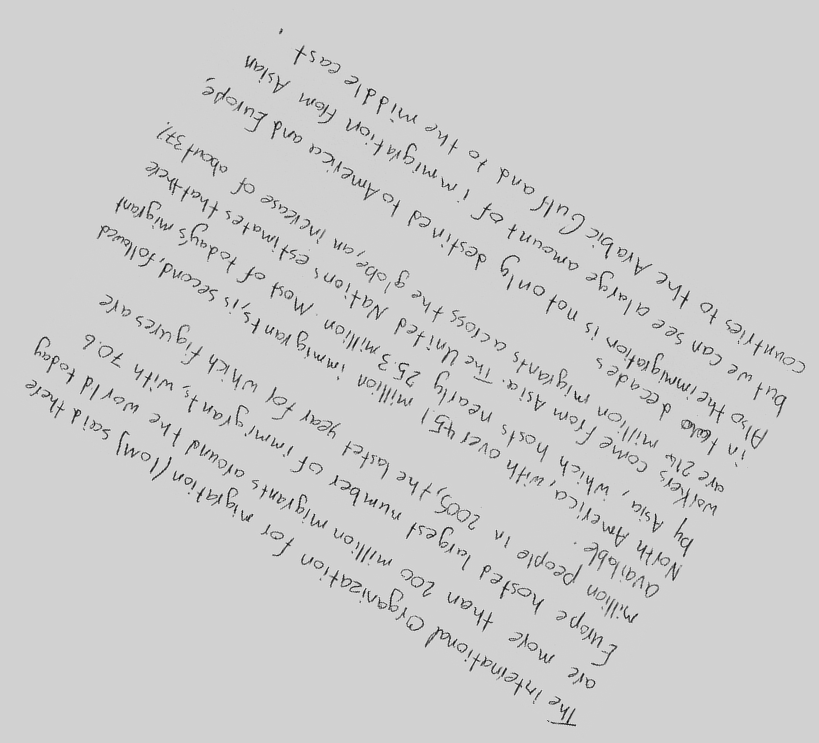 The international Organization for migration (IOM) said there
are more than 200 million migrants around the world today
Europe hosted largest number of immigrants, with 70.6
million people in 2005, the lastet year for which figures are
available.
North America, with over 45.1 million immigrants, is second, followed
by Asia, which hosts nearly 25.3 million. Most of today's migrant
workers come from Asia. The United Nation's estimates that there
are 214 million migrants across the globe, an increase of about 37%
in two decades
Also the immigration is not only destined to America and Europe,
but we can see a large amount of immigration from Asian
countries to the Arabic Gulf and to the middle east.